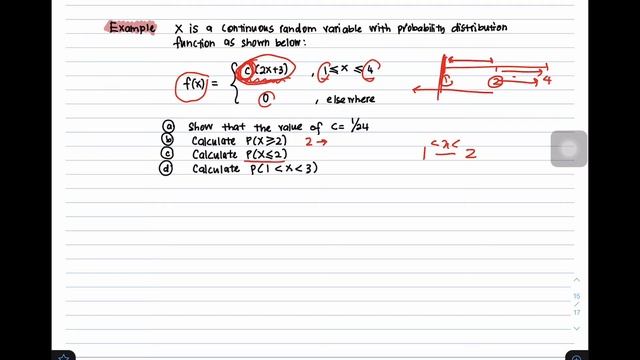 Example X is a continuous random variable with probability distribution
function as shown below:
f(x) = { c(2x+3) , 1 ≤ x ≤ 4
0 , elsewhere
1 2 4
(a) Show that the value of c = 1/24
(b) Calculate P(X≥2) 2 →
(c) Calculate P(X≤2)
(d) Calculate P(1 < X < 3)
1 < x < 2
15
17